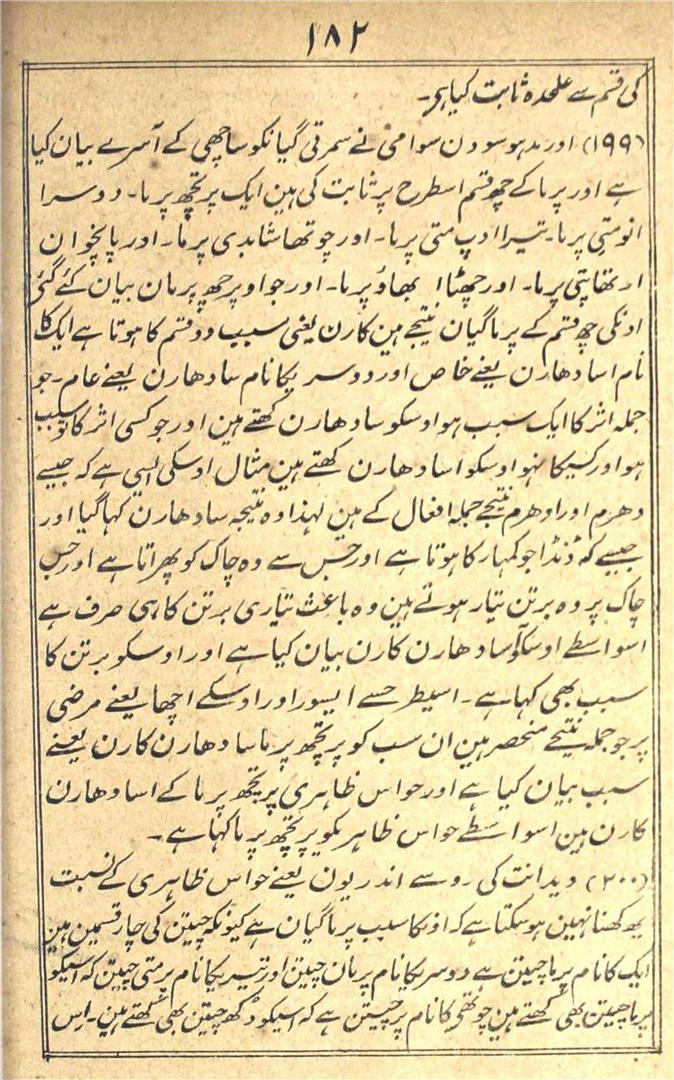 ۱۸۲
کی قسم سے علحدہ ثابت کیا ہی۔
(۱۹۹) اور مدہوسودن سوامی نے سمرتی گیانکو ساچھی کے آسرے بیان کیا
ہے اور پرما کے چھ قسم اسطرح پر ثابت کی ہین ایک پرتچھ پرما۔ دوسرا
انومتی پرما۔ تیسرا اوپ متی پرما۔ اور چوتھا شابدی پرما۔ اور پانچوان
ارتھاپتی پرما۔ اور چھٹا ا بھاؤ پرما۔ اور جو اوپر چھ پرمان بیان کئے گئے
اونکی چھ قسم کے پرما گیان نتیجے ہین کارن یعنی سبب دو قسم کا ہوتا ہے ایک کا
نام اسادھارن یعنے خاص اور دوسریکا نام سادھارن یعنے عام۔ جو
جملہ اثر کا ایک سبب ہو اوسکو سادھارن کہتے ہین اور جو کسی اثر کا تو سبب
ہو اور کسیکا نہو اوسکو اسادھارن کہتے ہین مثال اوسکی ایسی ہے کہ جیسے
دھرم اور ادھرم نتیجے جملہ افعال کے ہین لہذا وہ نتیجہ سادھارن کہا گیا اور
جیسے کہ ڈنڈا جو کمہار کا ہوتا ہے اور جس سے وہ چاک کو پھراتا ہے اور جس
چاک پر وہ برتن تیار ہوتے ہین وہ باعث تیاری برتن کا ہی صرف ہے
اسواسطے اوسکو اسادھارن کارن بیان کیا ہے اور اوسکو برتن کا
سبب بھی کہا ہے۔ اسیطرحسے ایسور اور اوسکے اچھا یعنے مرضی
پر جو جملہ نتیجے منحصر ہین ان سب کو پرتچھ پرما سادھارن کارن یعنے
سبب بیان کیا ہے اور حواس ظاہری پرتچھ پرما کے اسادھارن
کارن ہین اسواسطے حواس ظاہریکو پرتچھ پرما کہا ہے۔
(۲۰۰) ویدانت کی رو سے اندریون یعنے حواس ظاہری کے نسبت
یہ کہنا نہین ہوسکتا ہے کہ اونکا سبب پرما گیان ہے کیونکہ چیتن کی چار قسمین ہین
ایک کا نام پرماچیتن ہے دوسریکا نام پرمان چیتن اور تیسریکا نام پرمتی چیتن کہ اسیکو
پرما چیتن بھی کہتے ہین چوتھی کا نام چیتن ہے کہ اسیکو چیتن بھی کہتے ہین۔ اس